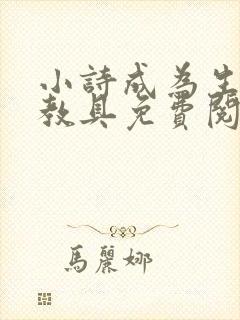 小詩成為生
教具免費閱
馬麗娜